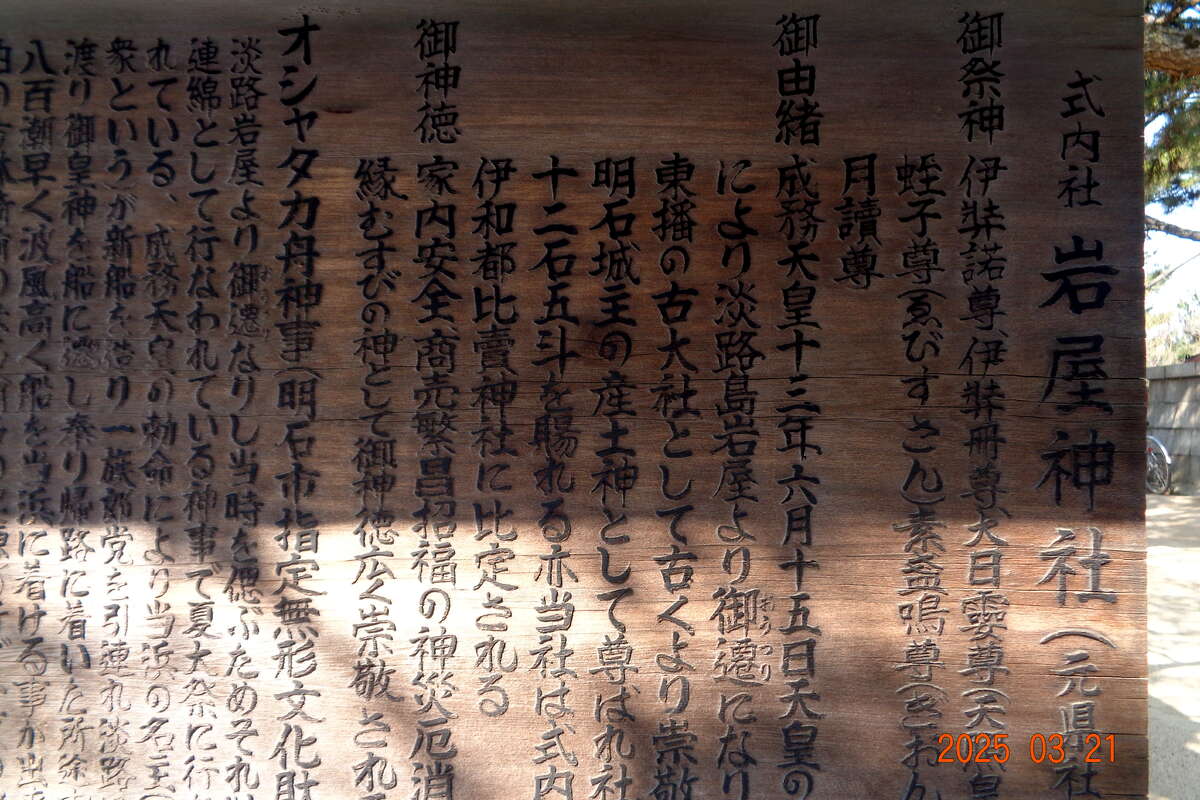 式内社 岩屋神社(元県社
御祭神 伊弉諾尊、伊弉冊尊、大日孁尊(天
蛭子尊(ゑびすさん)素盞鳴尊(ぎおん
月讀尊
御由緒 成務天皇十三年六月十五日天皇の
により淡路島岩屋より御遷になり
おうつり
東播の古大社として古くより崇敬
明石城主の産土神として尊ばれ社
十二石五斗を賜れる亦当社は式内
伊和都比賣神社に比定される
御神徳 家内安全、商売繁昌招福の神災厄消
縁むすびの神として御神徳広く崇敬され
オシャタカ舟神事(明石市指定無形文化財
淡路岩屋より御遷なりし当時を偲ぶためそれ
連綿として行なわれている神事で夏大祭に行
れている、成務天皇の勅命により当浜の名主(
衆という)が新船を造り一族郎党を引連れ淡路
渡り御皇神を船に遷し奉り帰路に着いた所途
八百潮早く波風高く船を当浜に着ける事が出
2025 03 21